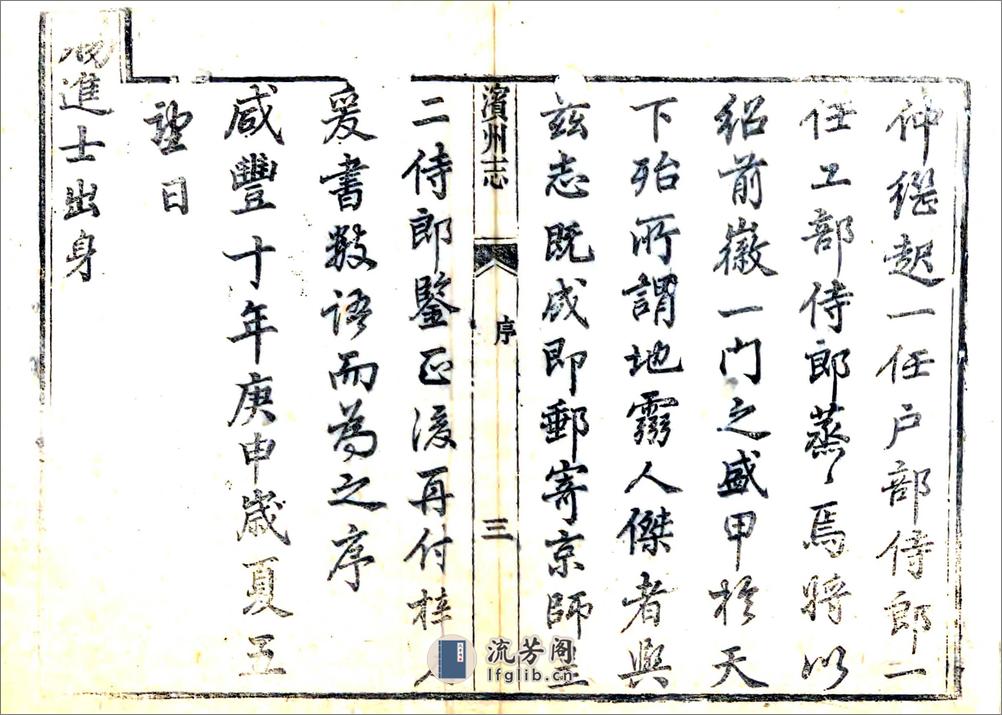 仲繼起一任户部侍郎一
任工部侍郎蒸〻焉將以
紹前徽一門之盛甲於天
下殆所謂地靈人傑者與
茲志既成即郵寄京師
濱州志
序
三
二侍郎鑒正後再付梓人
爰書數語而為之序
咸豐十年庚申歲夏五
望日
進士出身
流芳阁
lfglib.cn